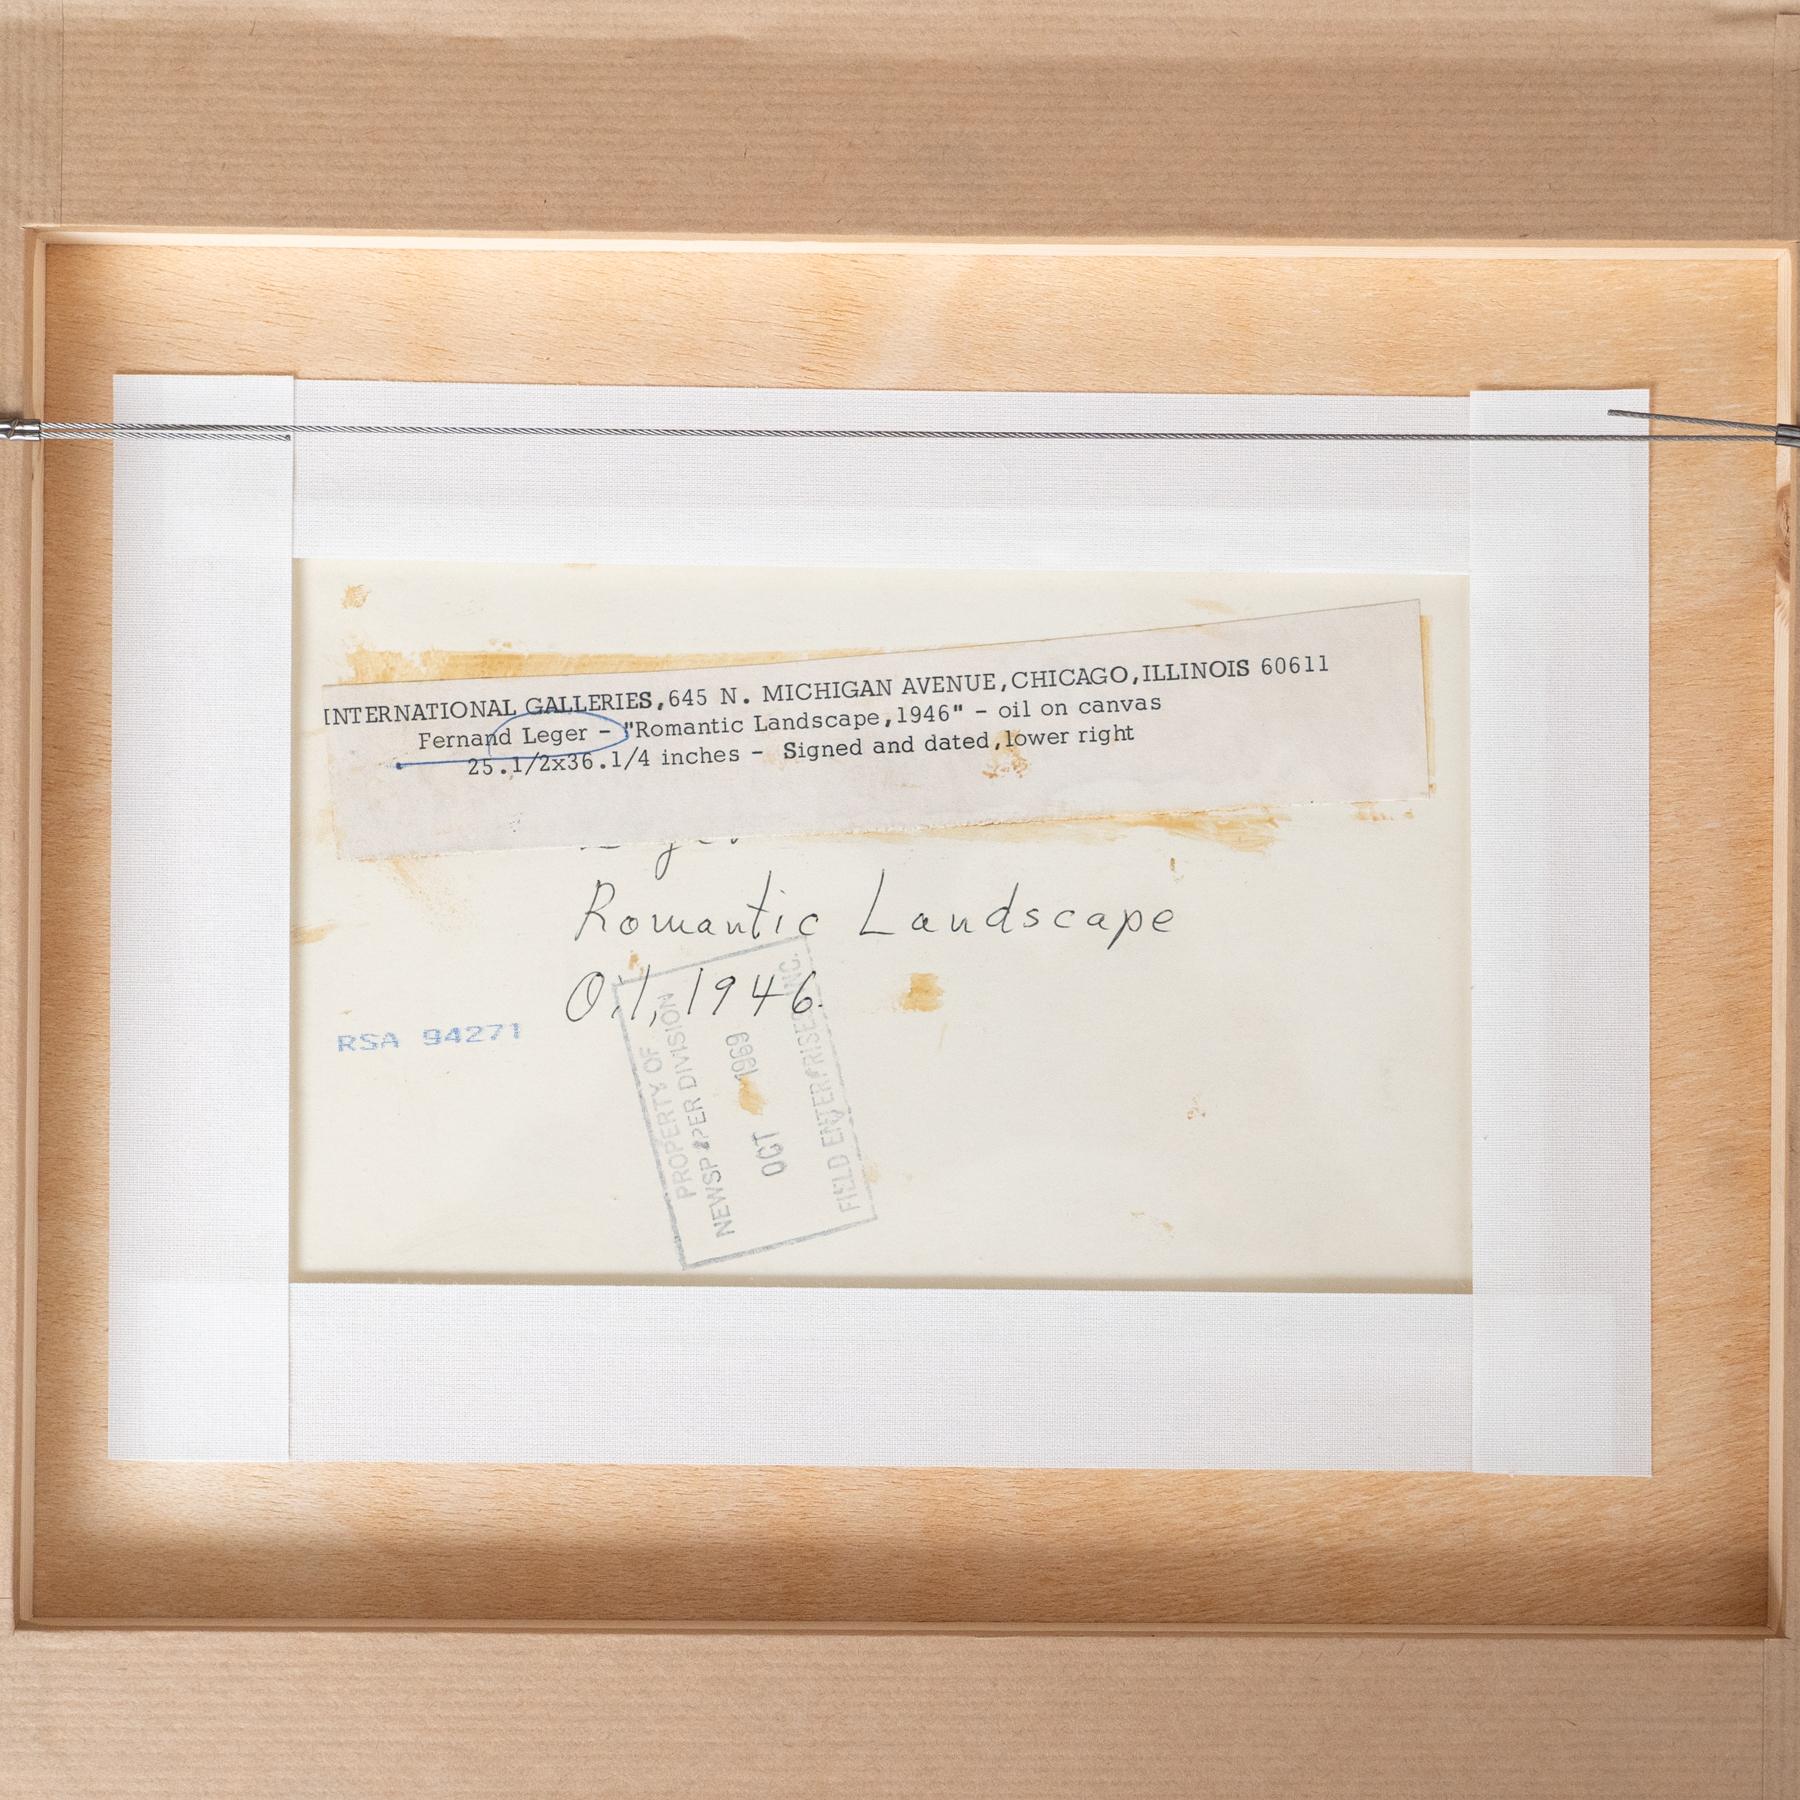 INTERNATIONAL GALLERIES,645 N. MICHIGAN AVENUE,CHICAGO,ILLINOIS 60611
Fernand Leger - "Romantic Landscape,1946" - oil on canvas
25.1/2x36.1/4 inches - Signed and dated,lower right
Romantic Landscape
Oil, 1946.
RSA 94271
PROPERTY OF
NEWSPAPER DIVISION
OCT 1969
FIELD ENTERPRISES, INC.